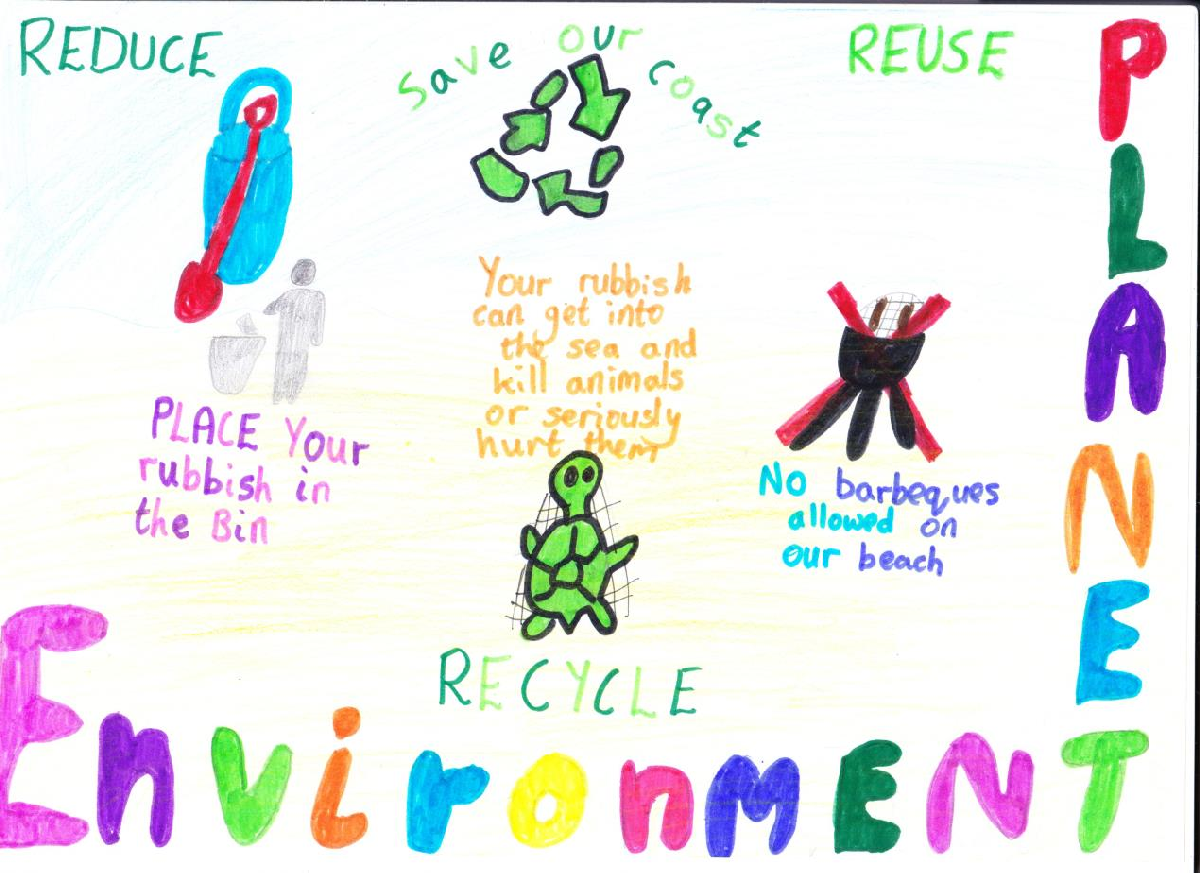 REDUCE
Save our coast
REUSE
PLANET
Your rubbish
can get into
the sea and
kill animals
or seriously
hurt them
PLACE Your
rubbish in
the Bin
No barbeques
allowed on
our beach
RECYCLE
EnvironmENT